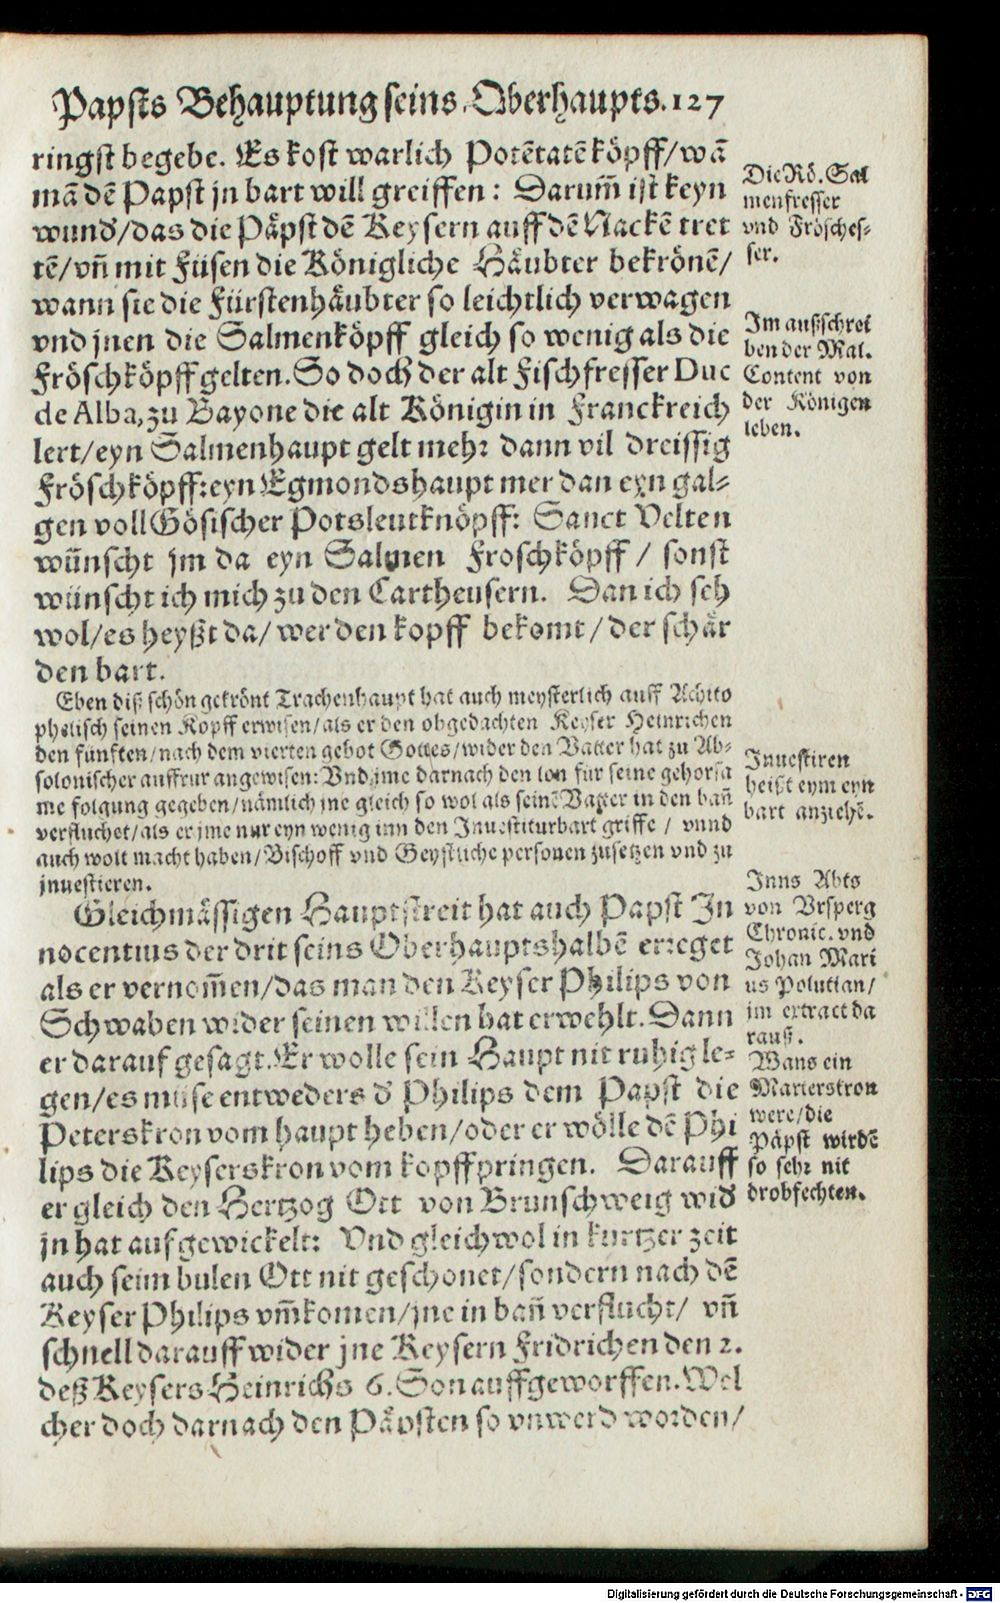 Papsts Behauptung seins Oberhaupts. 127
ringst begebe. Es kost warlich Potẽtatẽköpff/wã
mã dẽ Papst jn bart will greiffen: Darum̃ ist keyn
wund̕/das die Päpst dẽ Keysern auff dẽ Nackẽ tret
tẽ/vñ mit Füsen die Königliche Häubter bekrönẽ/
wann sie die Fürstenhäubter so leichtlich verwagen
vnd jnen die Salmenköpff gleich so wenig als die
Fröschköpff gelten. So doch der alt Fischfresser Duc
de Alba, zu Bayone die alt Königin in Franckreich
lert/eyn Salmenhaupt gelt mehr dann vil dreissig
Fröschköpff: eyn Egmondshaupt mer dan eyn gal⸗
gen voll Gösischer Potsleutknöpff: Sanct Velten
wünscht jm da eyn Salmen Froschköpff / sonst
wünscht ich mich zu den Cartheusern. Dan ich seh
wol/es heyßt da/wer den kopff bekomt/der schär
den bart.
Eben diß schön gekrönt Trachenhaupt hat auch meysterlich auff Achito
phelisch seinen Kopff erwisen/als er den obgedachten Keyser Heinrichen
den fünften/nach dem vierten gebot Gottes/wider den Vatter hat zu Ab⸗
solonischer auffrur angewisen: Vnd jme darnach den lon für seine gehorsa
me folgung gegeben/nämlich jne gleich so wol als seinẽ Vatter in den bañ
verfluchet/als er jme nur eyn wenig inn den Inuestiturbart griffe / vnnd
auch wolt macht haben/Bischoff vnd Geystliche personen zusetzen vnd zu
jnuestieren.
Gleichmässigen Hauptstreit hat auch Papst In
nocentius der drit seins Oberhauptshalbẽ erreget
als er vernom̃en/das man den Keyser Philips von
Schwaben wider seinen willen hat erwehlt. Dann
er darauf gesagt. Er wolle sein Haupt nit ruhig le⸗
gen/es müse entweders d̕ Philips dem Papst die
Peterskron vom haupt heben/oder er wölle dẽ Phi
lips die Keyserskron vom kopff pringen. Darauff
er gleich den Hertzog Ott von Brunschweig wid̕
jn hat aufgewickelt: Vnd gleichwol in kurtzer zeit
auch seim bulen Ott nit geschonet/sondern nach dẽ
Keyser Philips vm̃komen/jne in bañ verflucht/ vñ
schnell darauff wider jne Keysern Fridrichen den 2.
deß Keysers Heinrichs 6. Son auffgeworffen. Wel
cher doch darnach den Päpsten so vnwerd worden/
Die Rö. Sal
menfresser
vnd Frösches⸗
ser.
Im außschrei
ben der Mal.
Content von
der Königen
leben.
Inuestiren
heißt eym eyn
bart anziehẽ.
Inns Abts
von Vrsperg
Chronic. vnd
Johan Mari
us Polutian/
im extract da
rauß.
Wans ein
Marterstron
were/die
Päpst wirdẽ
so sehr nit
drobfechten.
Digitalisierung gefördert durch die Deutsche Forschungsgemeinschaft - DFG